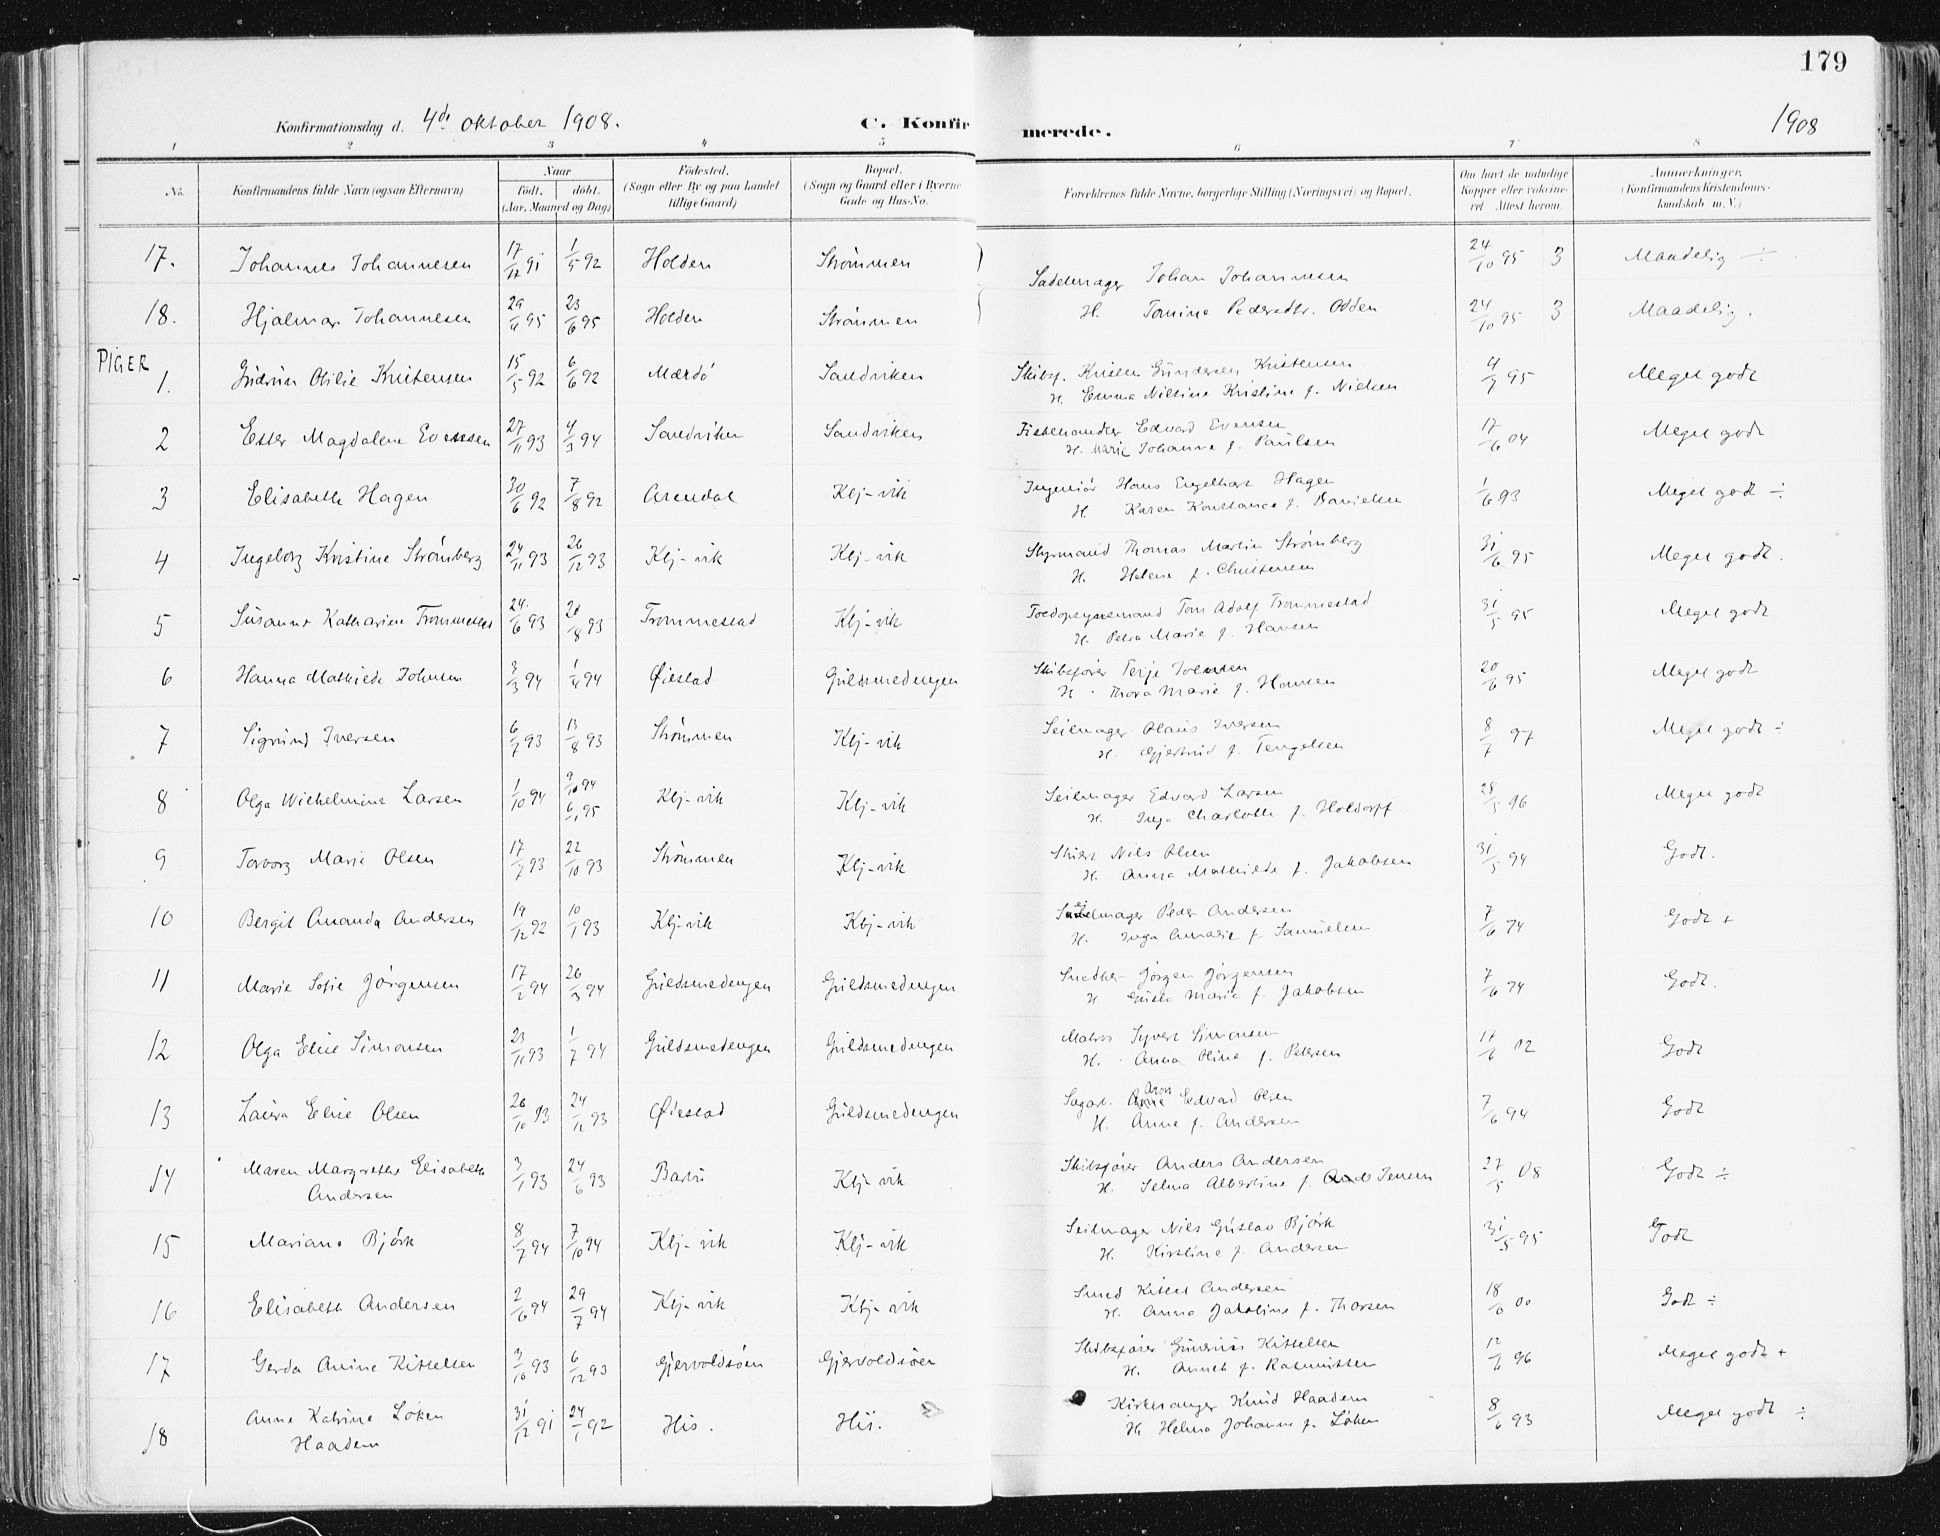 179
Konfirmationsdag d. 4de oktober 1908.
C. Konfirmerede.
1908
1 2 3 4 5 6 7 8
No. Konfirmandens fulde Navn (ogsaa Efternavn) Naar født. døbt. (Aar, Maaned og Dag) Fødested. (Sogn eller By og paa Landet tillige Gaard) Bopæl. (Sogn og Gaard eller i Byerne Gade og Hus-No. Forældrenes fulde Navne, borgerlige Stilling (Næringsvei) og Bopæl. Om havt de naturlige Kopper eller vakcineret Attest herom. Anmerkninger. (Konfirmandens Kristendomskundskab m. V.)
17. Johannes Johannesen 17/12 91 1/5 92 Holden Strømmen Sadelmager Johan Johannesen 24/10 95 3 Maadelig ÷
18. Hjalmar Johannesen 29/4 95 23/6 95 Holden Strømmen H. Tomine Pedersdtr. Odden 24/10 95 3 Maadelig.
PIGER
1. Gudrun Otilie Kristensen 15/5 92 6/6 92 Mærdø Sandviken Skibsf. Kristen Gundersen Kristensen 4/7 95 Meget godt
H. Emma Nilsine Kristine f. Nielsen
2 Ester Magdalene Evensen 27/11 93 4/3 94 Sandviken Sandviken Fiskehandler Edvard Evensen 17/6 04 Meget godt
H. Marie Johanne f. Paulsen
3 Elisabeth Hagen 30/6 92 7/8 92 Arendal Kbj-vik Ingeniør Hans Engelhart Hagen 1/6 93 Meget godt ÷
H. Karen Konstance f. Danielsen
4 Ingeborg Kristine Strømberg 24/11 93 26/12 93 Kbj-vik Kbj-vik Styrmand Thomas Martin Strømberg 31/6 95 Meget godt.
H. Helene f. Christensen
5 Susanne Katharine Trommestad 24/6 93 20/8 93 Trommestad Kbj-vik Toldopsynsmand Tom Adolf Trommestad 31/5 95 Meget godt
H. Petra Marie f. Hansen
6 Hanna Mathilde Johnsen 7/3 94 1/4 94 Øiestad Guldsmedengen Skibsfører Terje Johnsen 20/6 95 Meget godt
H. Thora Marie f. Hansen
7 Sigrund Iversen 6/7 93 13/8 93 Strømmen Kbj-vik Seilmager Olaus Iversen 8/7 97 Meget godt ÷
H. Gjertrud f. Tengelsen
8 Olga Wilhelmine Larsen 1/10 94 9/10 94 6/1 95 Kbj-vik Kbj-vik Seilmager Edvard Larsen 28/5 96 Meget godt
H. Inga Charlotte f. Holdorff
9 Torborg Marie Olsen 17/7 93 22/10 93 Strømmen Kbj-vik Nils Olsen 31/5 94 Godt.
H. Anna Mathilde f. Jakobsen
10 Bergit Amanda Andersen 19/12 92 10/1 93 Kbj-vik Kbj-vik Seilmager Peder Andersen 7/6 94 Godt +
H. Inga Amalie f. Samuelsen
11 Marie Sofie Jørgensen 17/2 94 26/3 94 Guldsmedengen Guldsmedengen Snedker Jørgen Jørgensen 7/6 94 Godt.
H. Gusta Marie f. Jakobsen
12 Olga Elise Simonsen 23/11 93 1/7 94 Guldsmedengen Guldsmedengen Matros Syvert Simonsen 17/6 02 Godt
H. Anna Oline f. Petersen
13 Laura Elise Olsen 26/10 93 24/12 93 Øiestad Guldsmedengen Sagarb. Aron Edvard Olsen 7/6 94 Godt
H. Anne f. Andersen
14 Maren Margrethe Elisabeth Andersen 3/1 93 24/6 93 Barbu Kbj-vik Skibsfører Anders Andersen 27/5 08 Godt ÷
H. Selma Albertine f. Jensen
15 Mariane Bjørk 8/7 94 7/10 94 Kbj-vik Kbj-vik Seilmager Nils Gustav Bjørk 31/5 95 Godt
H. Kirstine f. Andersen
16 Elisabeth Andersen 2/6 94 29/7 94 Kbj-vik Kbj-vik Smed Kittel Andersen 18/6 00 Godt ÷
H. Anna Jakobine f. Thorsen
17 Gerda Anine Kittelsen 3/10 93 6/12 93 Gjervoldsøen Gjervoldsøen Skibsfører Gunerius Kittelsen 12/6 96 Meget godt +
H. Anneth f. Rasmussen
18 Anne Katrine Løken Haadem 31/12 91 24/1 92 His. His. Kirkesanger Knud Haadem 8/6 93 Meget godt ÷
H. Helma Johanne f. Løken